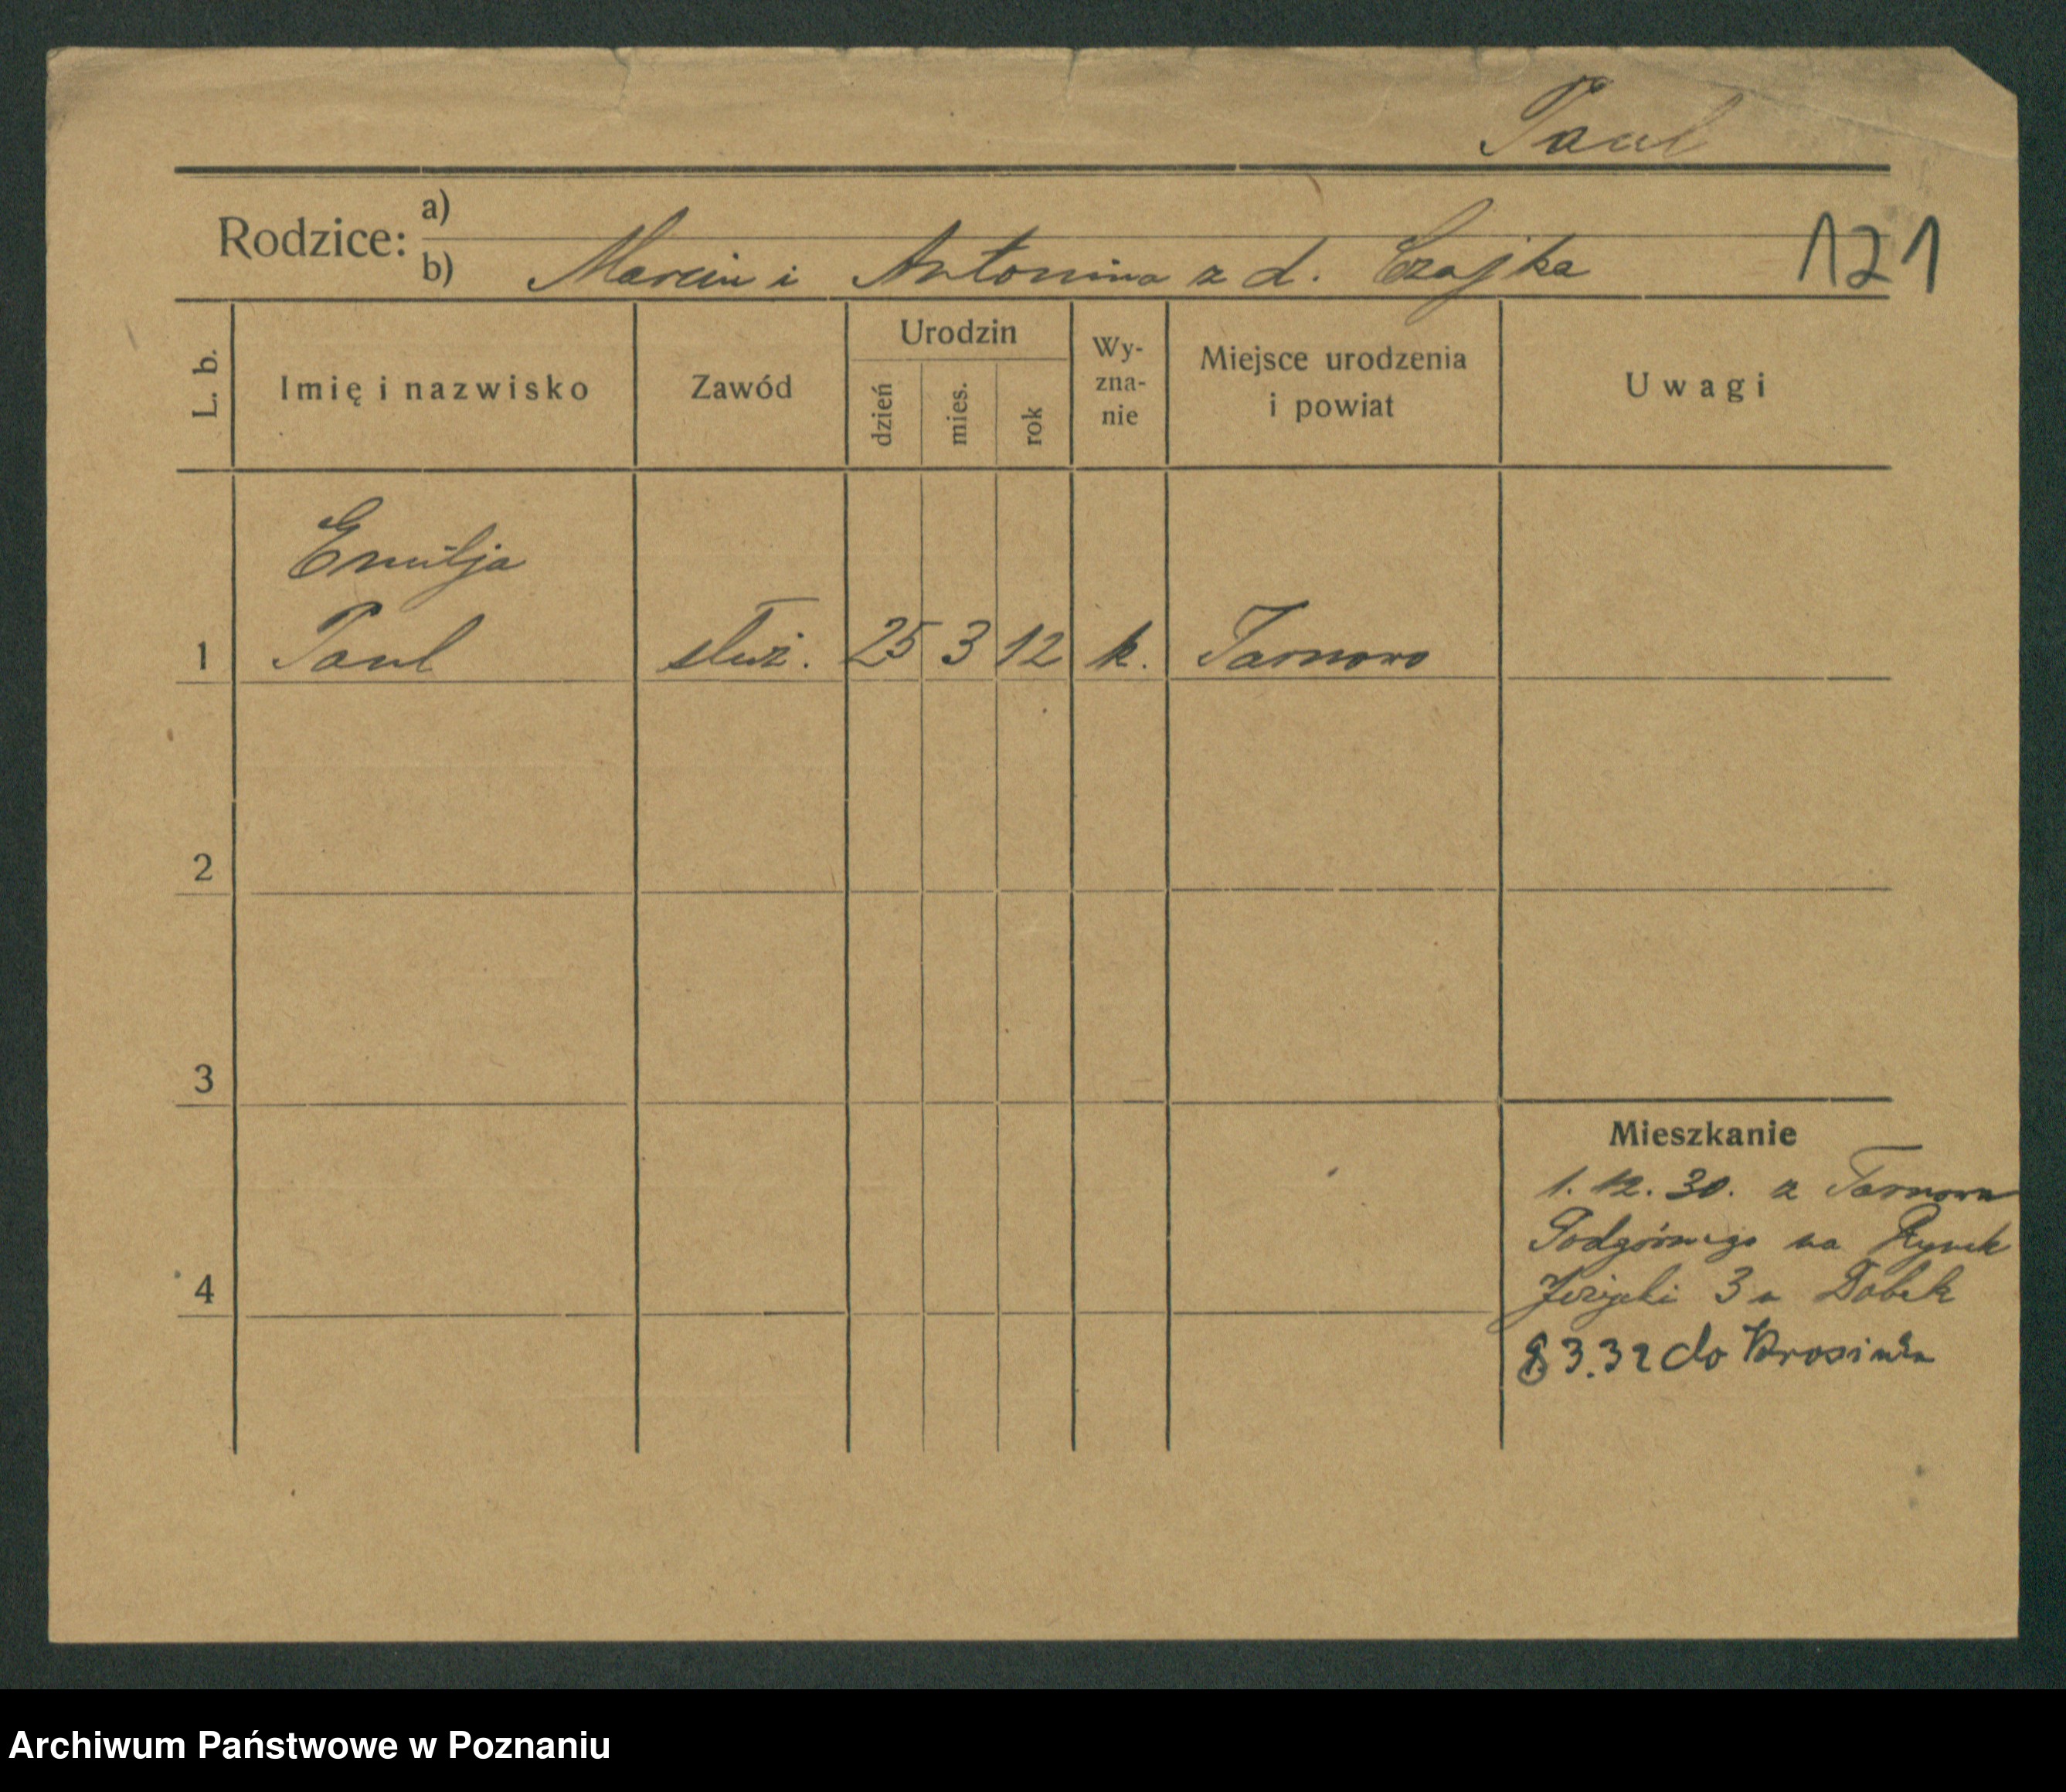 Paul
Rodzice: a)
b) Marcin i Antonina z d. Czajka
121
L. b.
Imię i nazwisko
Zawód
Urodzin
dzień
mies.
rok
Wy-
zna-
nie
Miejsce urodzenia
i powiat
Uwagi
Emilja
1 Paul służ. 25 3 12 k. Tarnowo
2
3
4
Mieszkanie
1. 12. 30. z Tarnowa
Podgórnego na Rynek
Jeżycki 3 u Dobek
3.32 do Krosinka
Archiwum Państwowe w Poznaniu